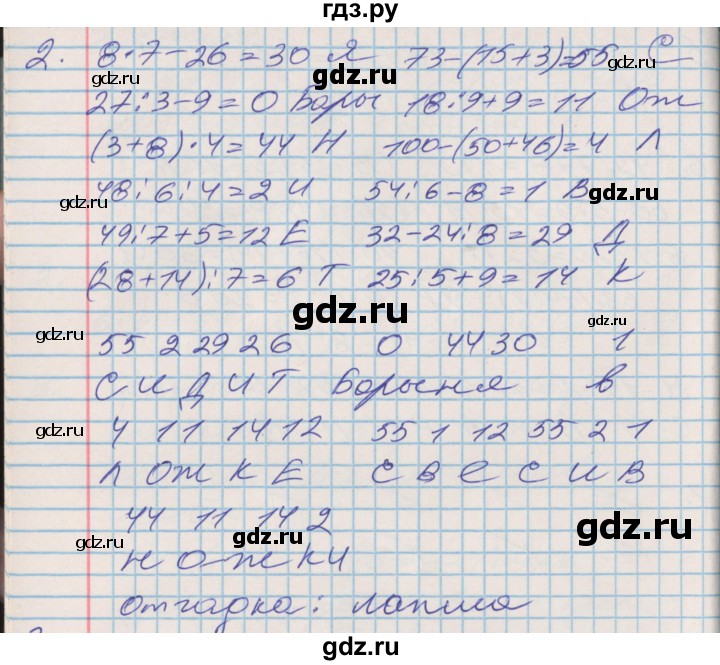 гдз.ру
2. 8·7-26=30 Я 73-(15+3)=55 С
gdz.ru gdz.ru
27:3-9=0 Бары 18:9+9=11 Ож
(3+8)·4=44 Н 100-(50+46)=4 Л
48:6:4=2 И 54:6-8=1 В
gdz.ru gdz.ru
49:7+5=12 Е 32-24:8=29 Д
(28+14):7=6 Т 25:5+9=14 К
gdz.ru
gdz.ru gdz.ru
55 2 29 2 6 0 44 30 1
СИДИТ Барыня в
gdz.ru
4 11 14 12 55 1 12 55 2 1
ЛОЖКЕ СВЕСИВ
44 11 14 2
gdz.ru gdz.ru gdz.ru
НОЖКИ
отгадка: лапша
gdz.ru